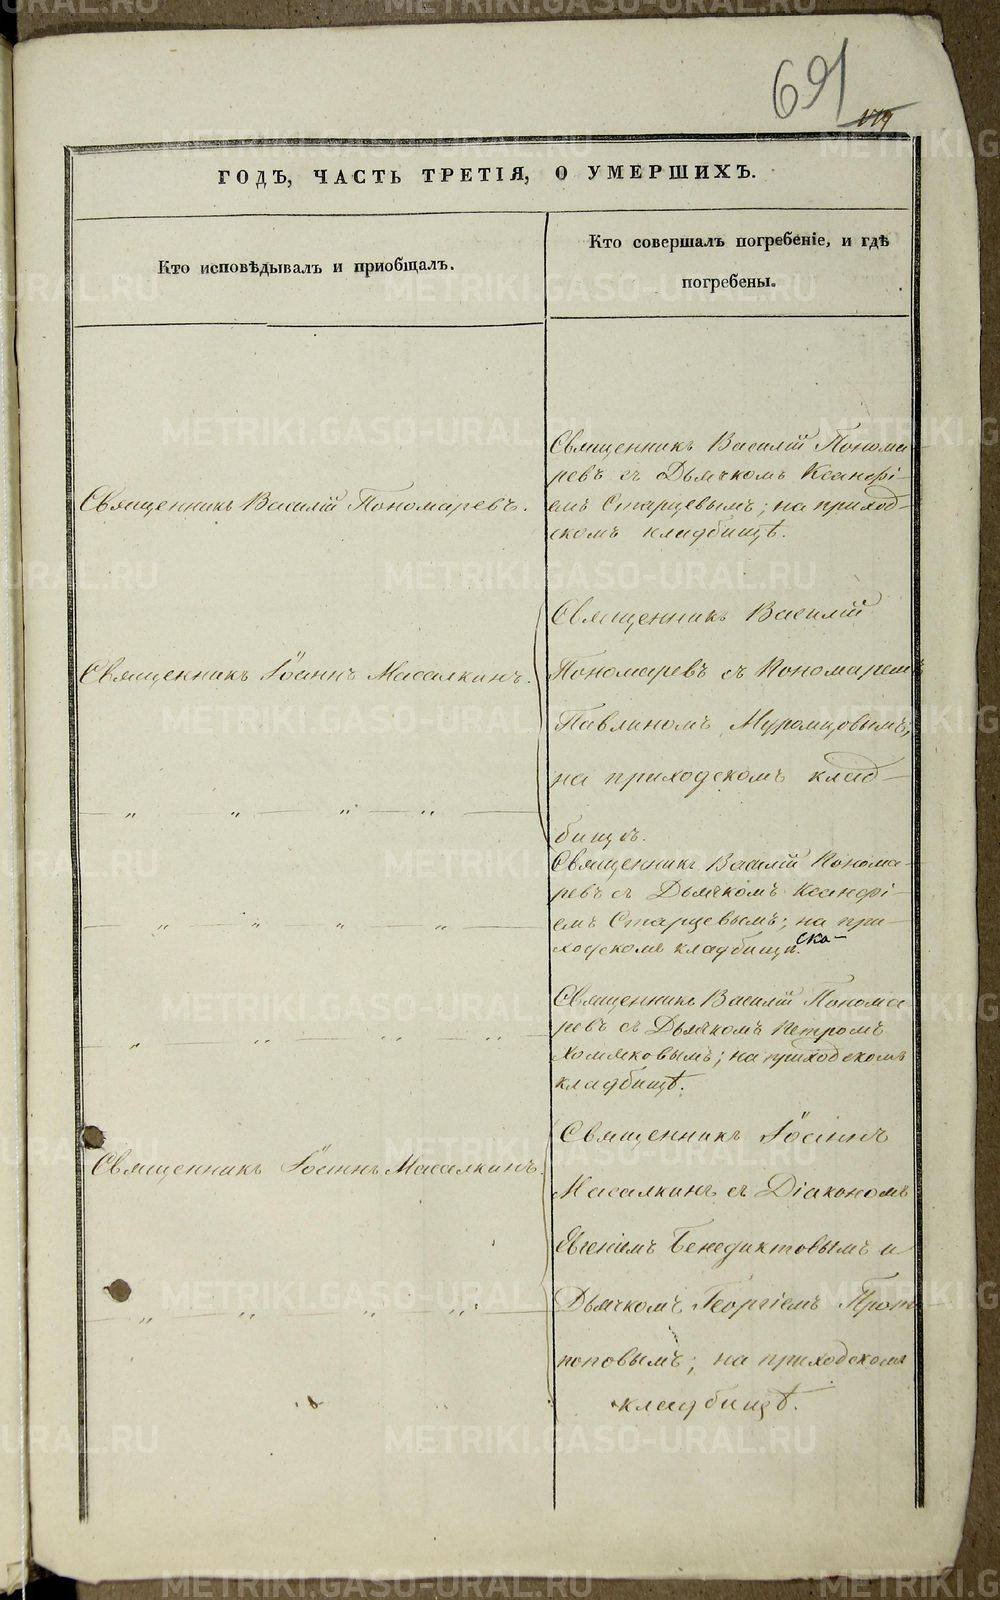 691
119
ГОДЪ, ЧАСТЬ ТРЕТІЯ, О УМЕРШИХЪ.
Кто исповѣдывалъ и приобщалъ.
Кто совершалъ погребеніе, и гдѣ
погребены.
Священникъ Василій Пономаревъ.
Священникъ Василій Понома-
ревъ съ Дьячкомъ Ксанфі-
емъ Старцевымъ; на приход-
скомъ кладбищѣ.
Священникъ Іоаннъ Масалкинъ.
Священникъ Василій
Пономаревъ съ Пономаремъ
Павлиномъ Муромцовымъ;
на приходскомъ клад-
бищѣ.
— „ — „ — „ — „ —
Священникъ Василій Понома-
ревъ съ Дьячкомъ Ксанфі-
емъ Старцевымъ; на при-
ско-
ходскомъ кладбищѣ.
— „ — „ — „ — „ —
Священникъ Василій Понома
ревъ съ Дьячкомъ Петромъ
Хомяковымъ; на приходскомъ
кладбищѣ.
— „ — „ — „ — „ —
Священникъ Іоаннъ Масалкинъ.
Священникъ Іоаннъ
Масалкинъ съ Діакономъ
Евгеніемъ Бенедиктовымъ и
Дьячкомъ Георгіемъ Прото-
поповымъ; на приходскомъ
кладбищѣ.
— „ — „ — „ — „ —
METRIKI.GASO-URAL.RU